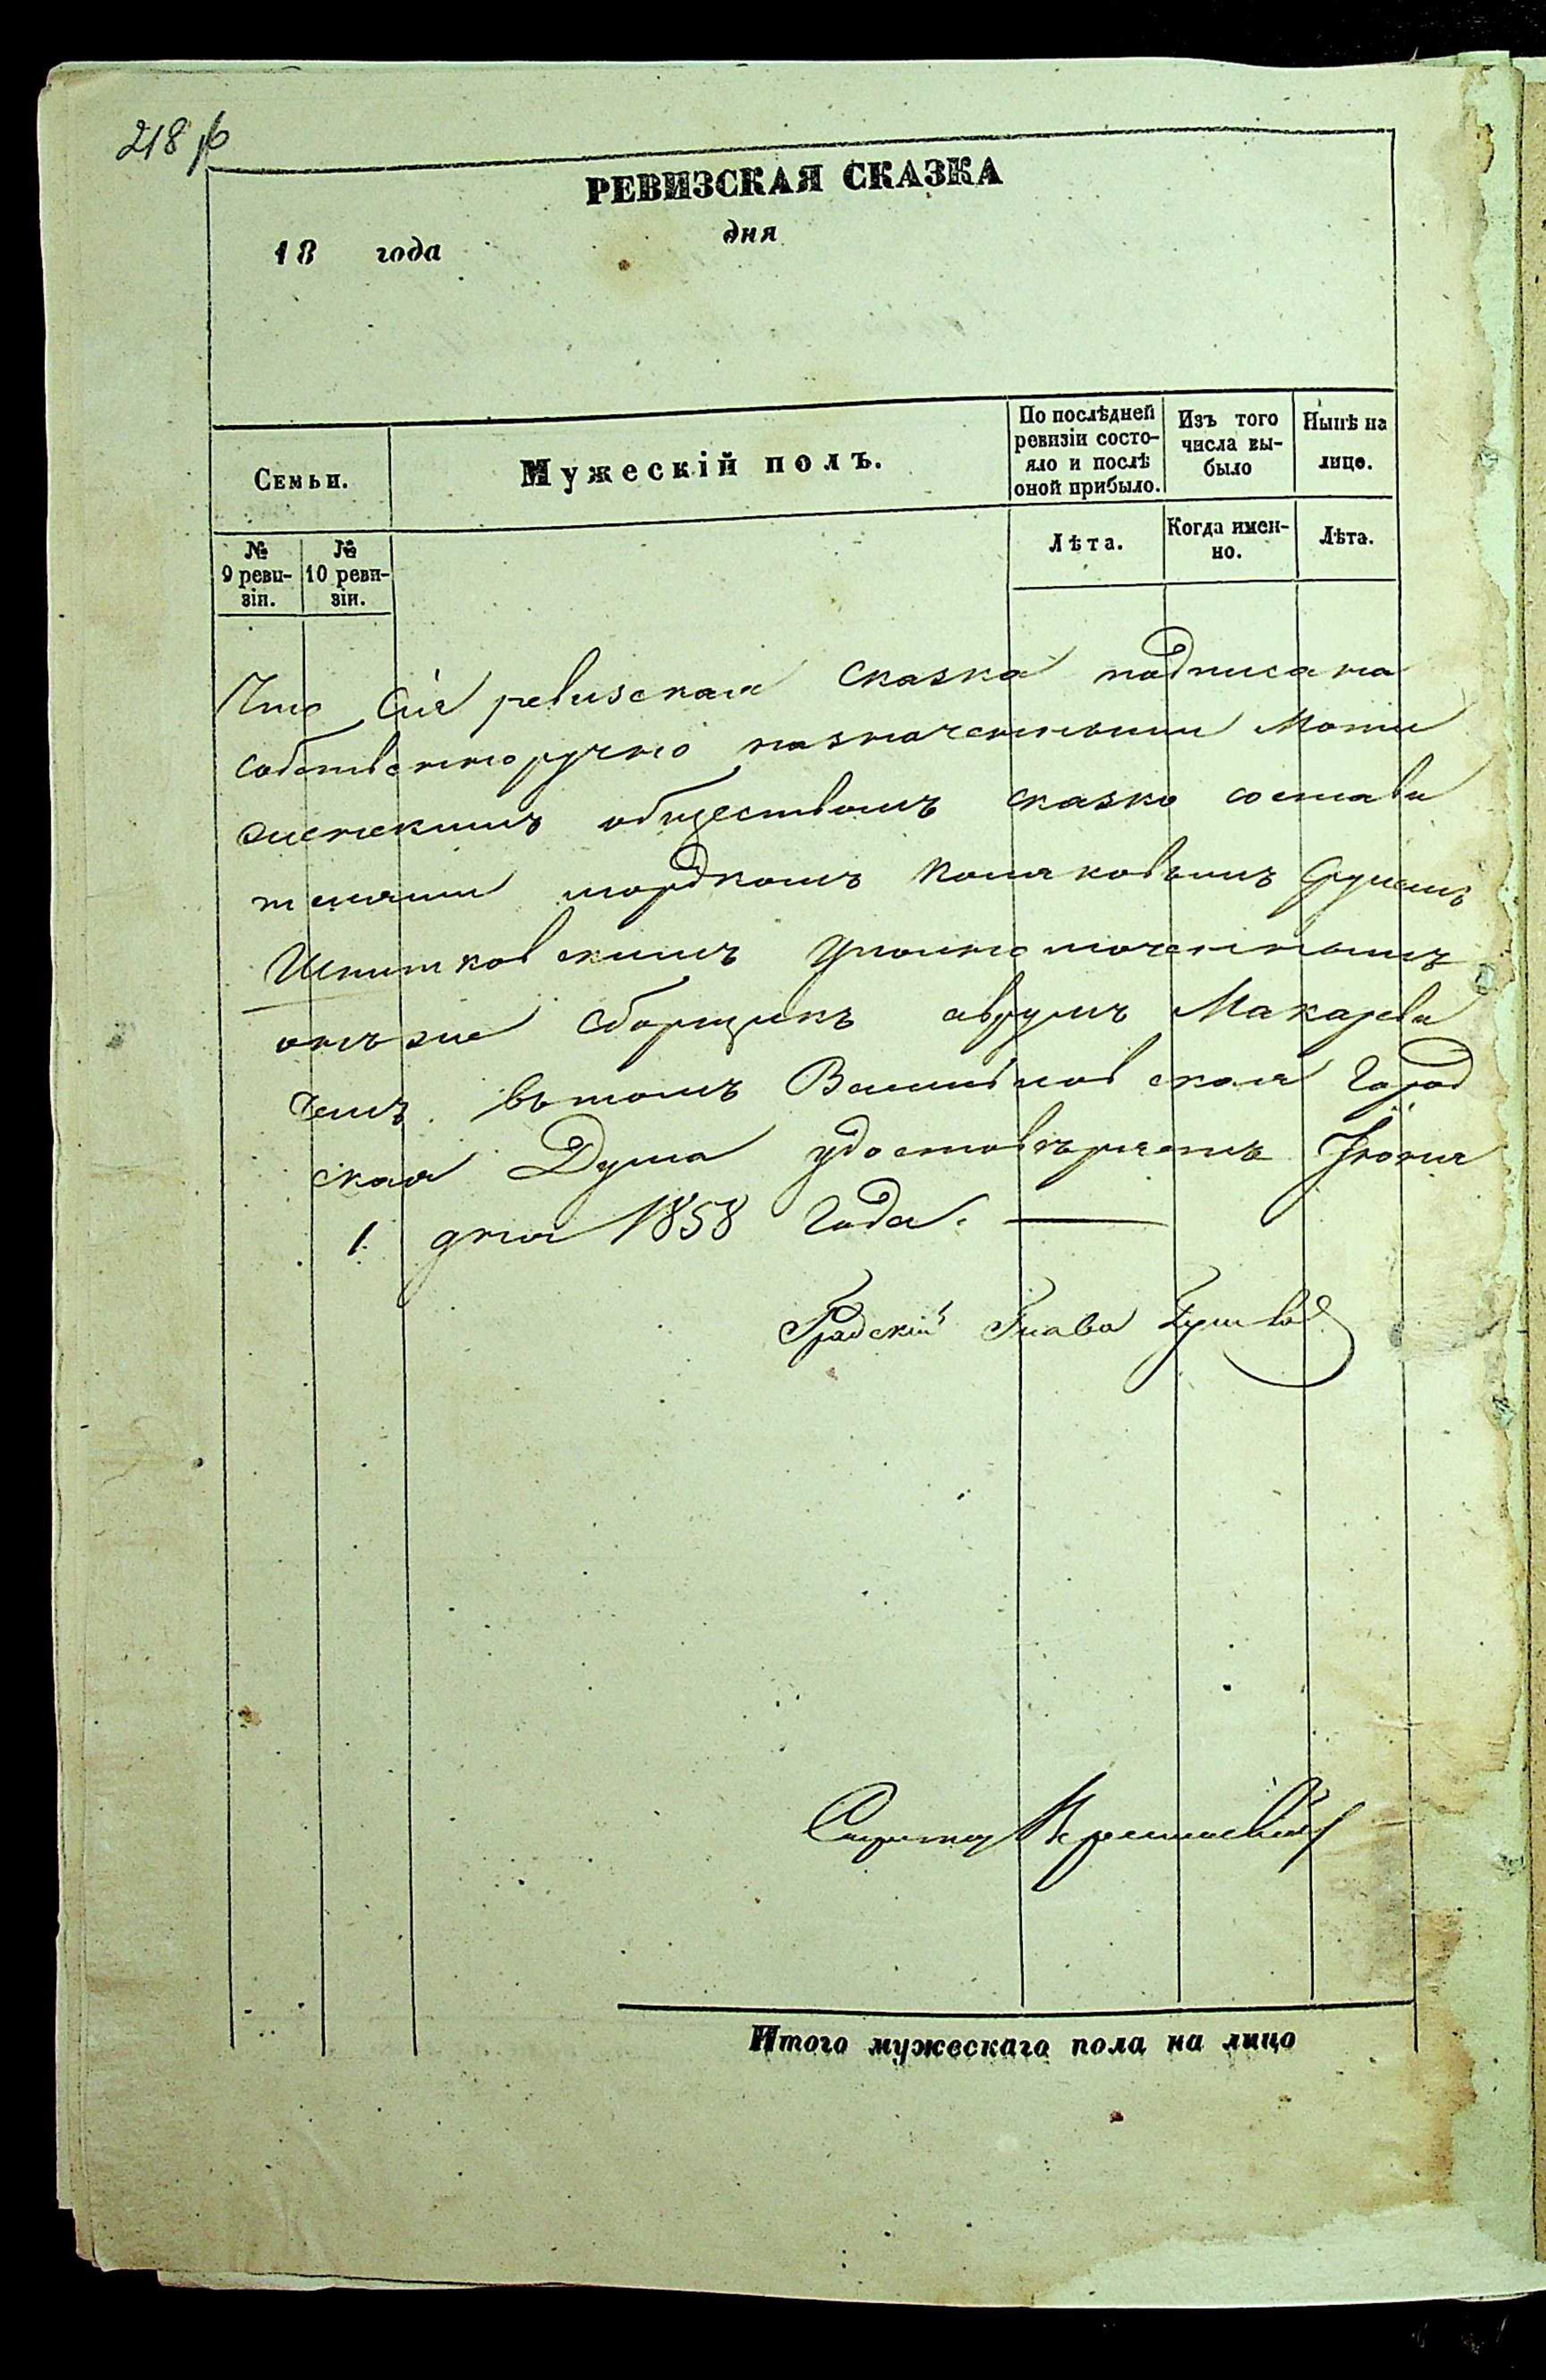 218 ϳб
РЕВИЗСКАЯ СКАЗКА
18 года дня
Семьи.
Мужескій полъ.
По послѣдней ревизіи состо-яло и послѣ оной прибыло.
Изъ того числа вы-было
Нынѣ на лицо.
№ 9 реви-зіи.
№ 10 реви-зіи.
Лѣта.
Когда имен-но.
Лѣта.
Что сія ревизская сказка подписана
собственноручно назначенными Моти
женскимъ обществомъ сказко состави
телями мордкомъ Комаковымъ Сруемъ
Шпитковскимъ Уполномоченнымъ
онъ же сборщикъ аврумъ Макареви
чемъ вътомъ Васильковская Город
ская Дума удостовѣряетъ Іюня
1 дня 1858 года.
Градскій Глава
Итого мужескаго пола на лицо